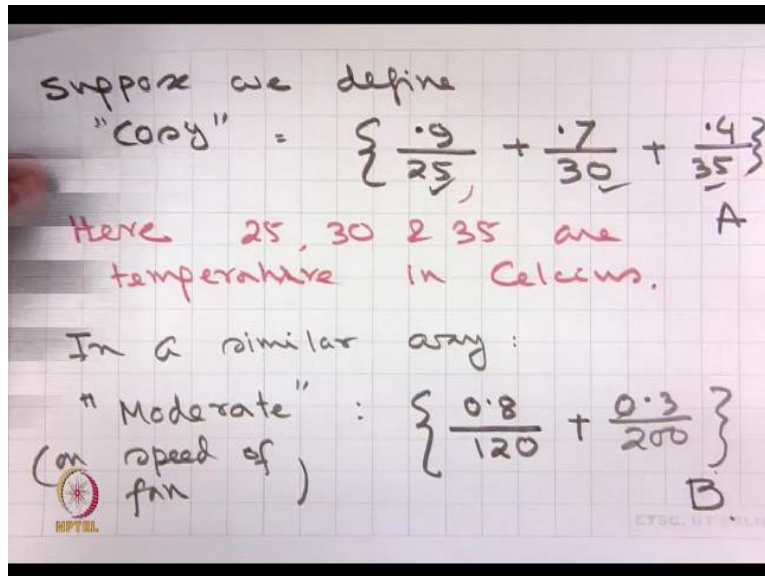 suppose we define
"Cosy" = { .9/25 + .7/30 + .4/35 }
A
Here 25, 30 & 35 are
temperature in Celcius.
In a similar way :
"Moderate" : { 0.8/120 + 0.3/200 }
(on speed of
fan )
B
NPTEL
ETSC, IIT DELHI